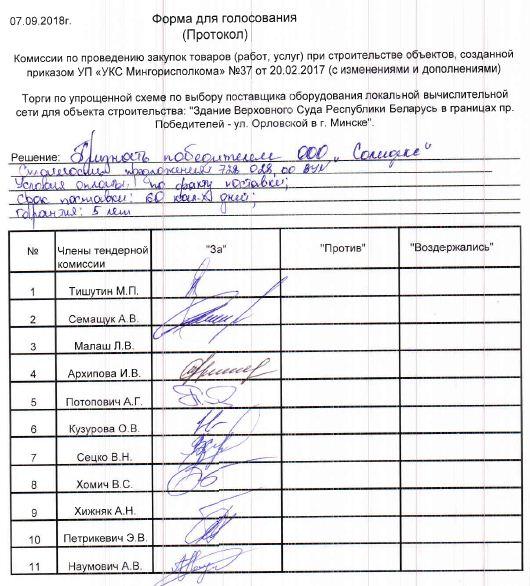 07.09.2018г.
Форма для голосования
(Протокол)
Комиссии по проведению закупок товаров (работ, услуг) при строительстве объектов, созданной
приказом УП «УКС Мингорисполкома» №37 от 20.02.2017 (с изменениями и дополнениями)
Торги по упрощенной схеме по выбору поставщика оборудования локальной вычислительной
сети для объекта строительства: "Здание Верховного Суда Республики Беларусь в границах пр.
Победителей - ул. Орловской в г. Минске".
Решение: Признать победителем ООО
предложения 728 028,00 BYN
Условия оплаты: по факту поставки;
Срок поставки: 60 кал-х дней;
Гарантия: 5 лет
№ Члены тендерной комиссии "За" "Против" "Воздержались"
1 Тишутин М.П.
2 Семащук А.В.
3 Малаш Л.В.
4 Архипова И.В.
5 Потопович А.Г.
6 Кузурова О.В.
7 Сецко В.Н.
8 Хомич В.С.
9 Хижняк А.Н.
10 Петрикевич Э.В.
11 Наумович А.В.